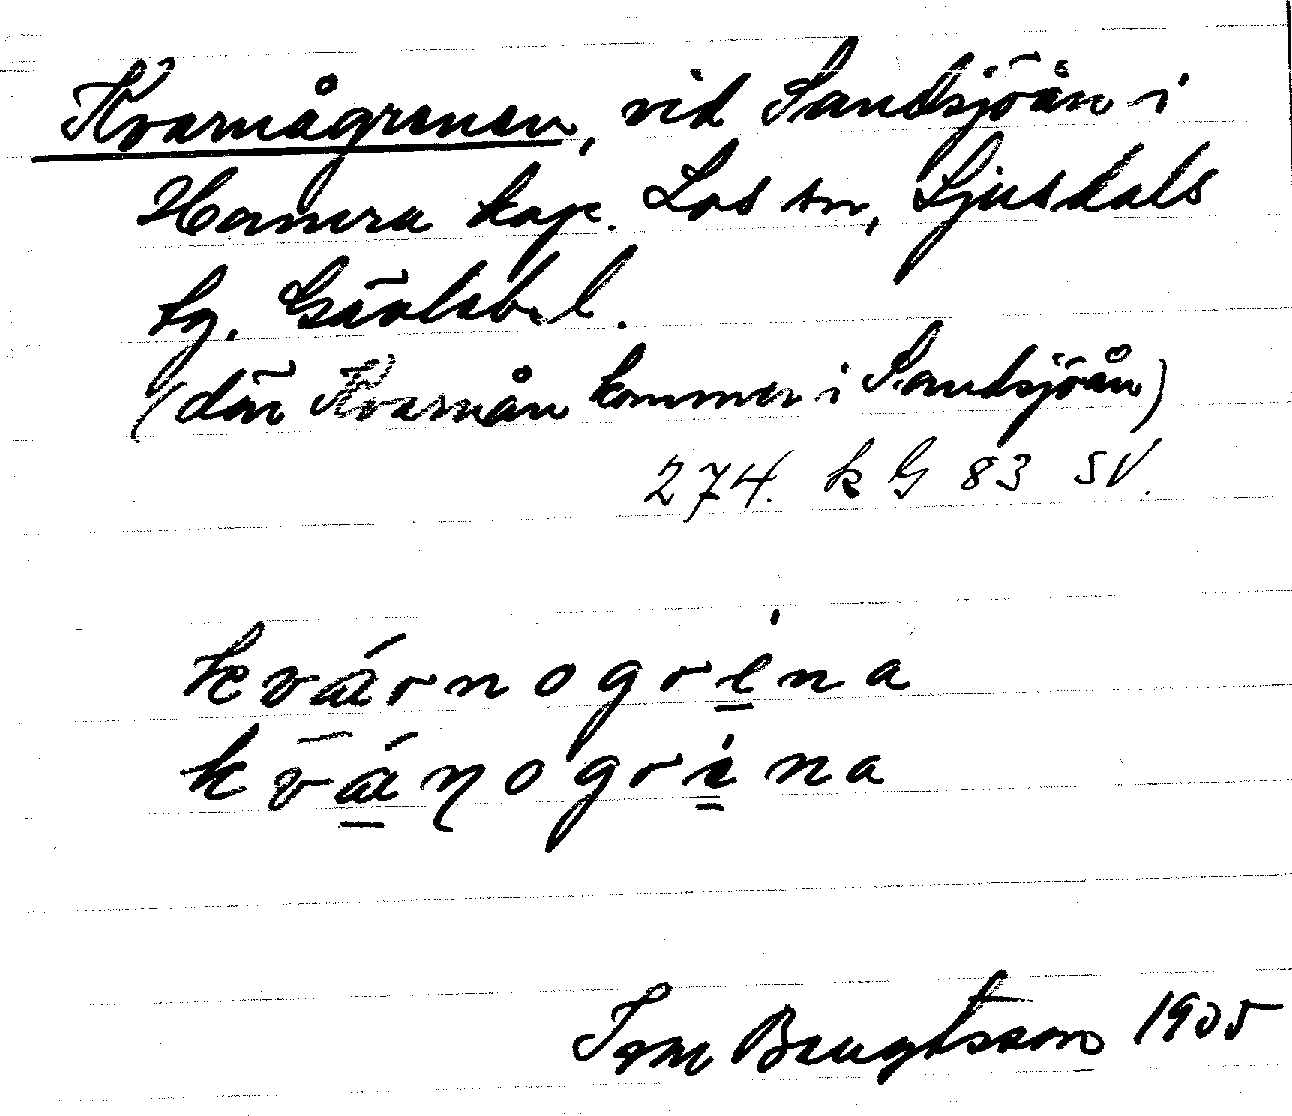 Kvarnågrenen, vid Sandsjöån i
Hamra kap. Los sn, Ljusdals
tg. Gävlebl.
(där Kvarnån kommer i Sandsjöån)
274. k G 83 SV.
kvárnogrena
kváṇogrina
Bengtsson 1905